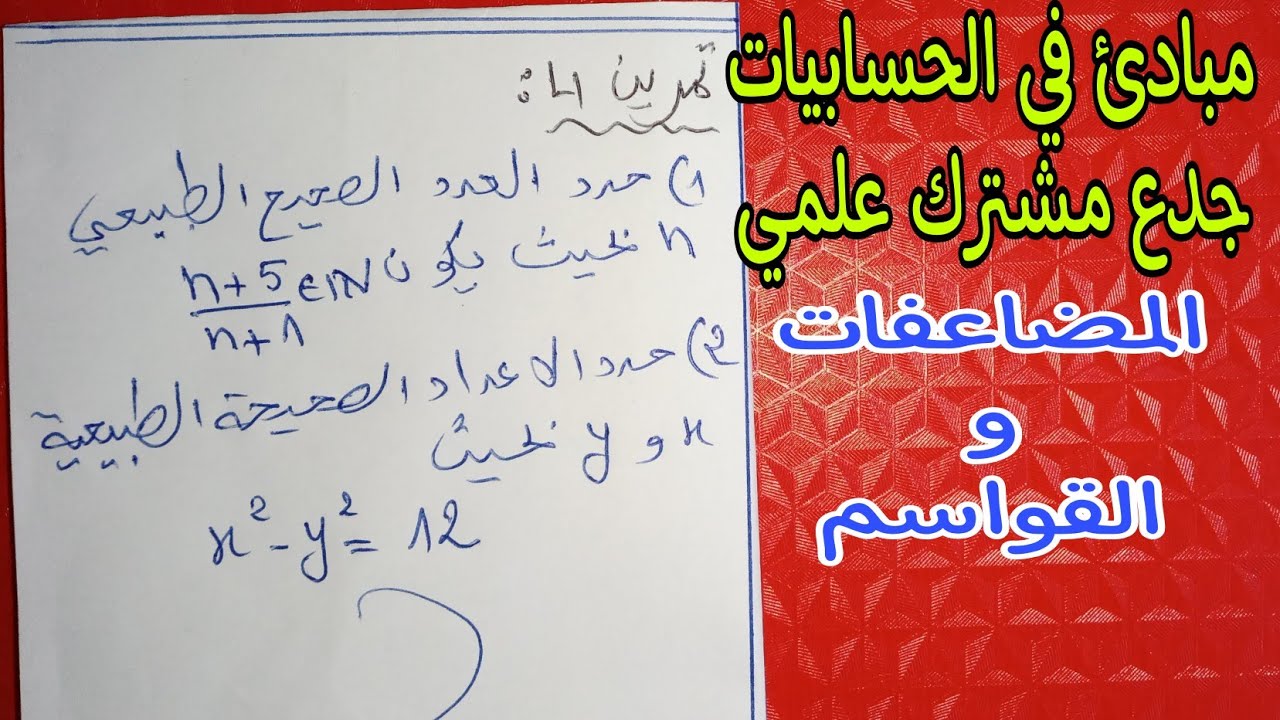 مبادئ في الحسابيات
جدع مشترك علمي
المضاعفات
و
القواسم
تمرين 4:
1) حدد العدد الصحيح الطبيعي
n بحيث يكون n+5/n+1 ∈ IN
2) حدد الاعداد الصحيحة الطبيعية
x و y بحيث
x² - y² = 12